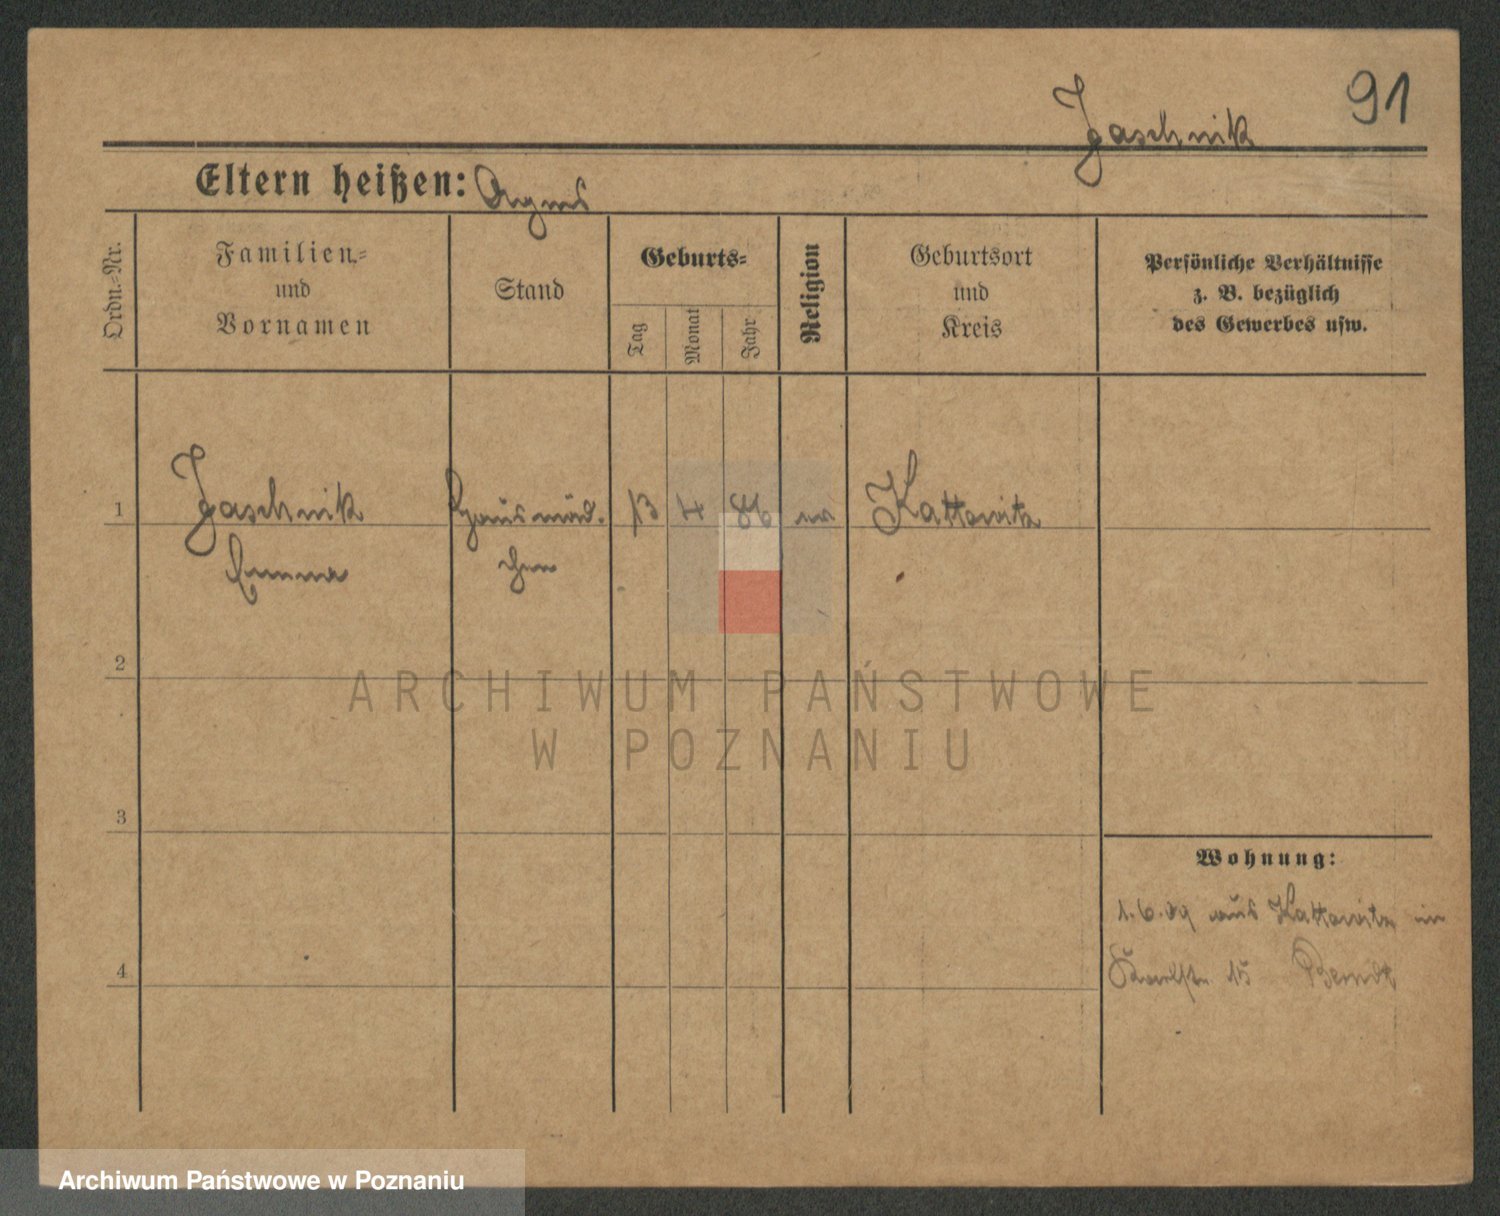 91
Jaschnik
Eltern heißen: Agnes
Ordn.-Nr.
Familien-
und
Vornamen
Stand
Geburts-
Tag
Monat
Jahr
Religion
Geburtsort
und
Kreis
Persönliche Verhältnisse
z. B. bezüglich
des Gewerbes usw.
1 Jaschnik Hausmäd- 13 4 86 ev Kattowitz
Emma chen
2
ARCHIWUM PAŃSTWOWE
W POZNANIU
3
Wohnung:
1.6.09 aus Kattowitz in
4
15
Archiwum Państwowe w Poznaniu